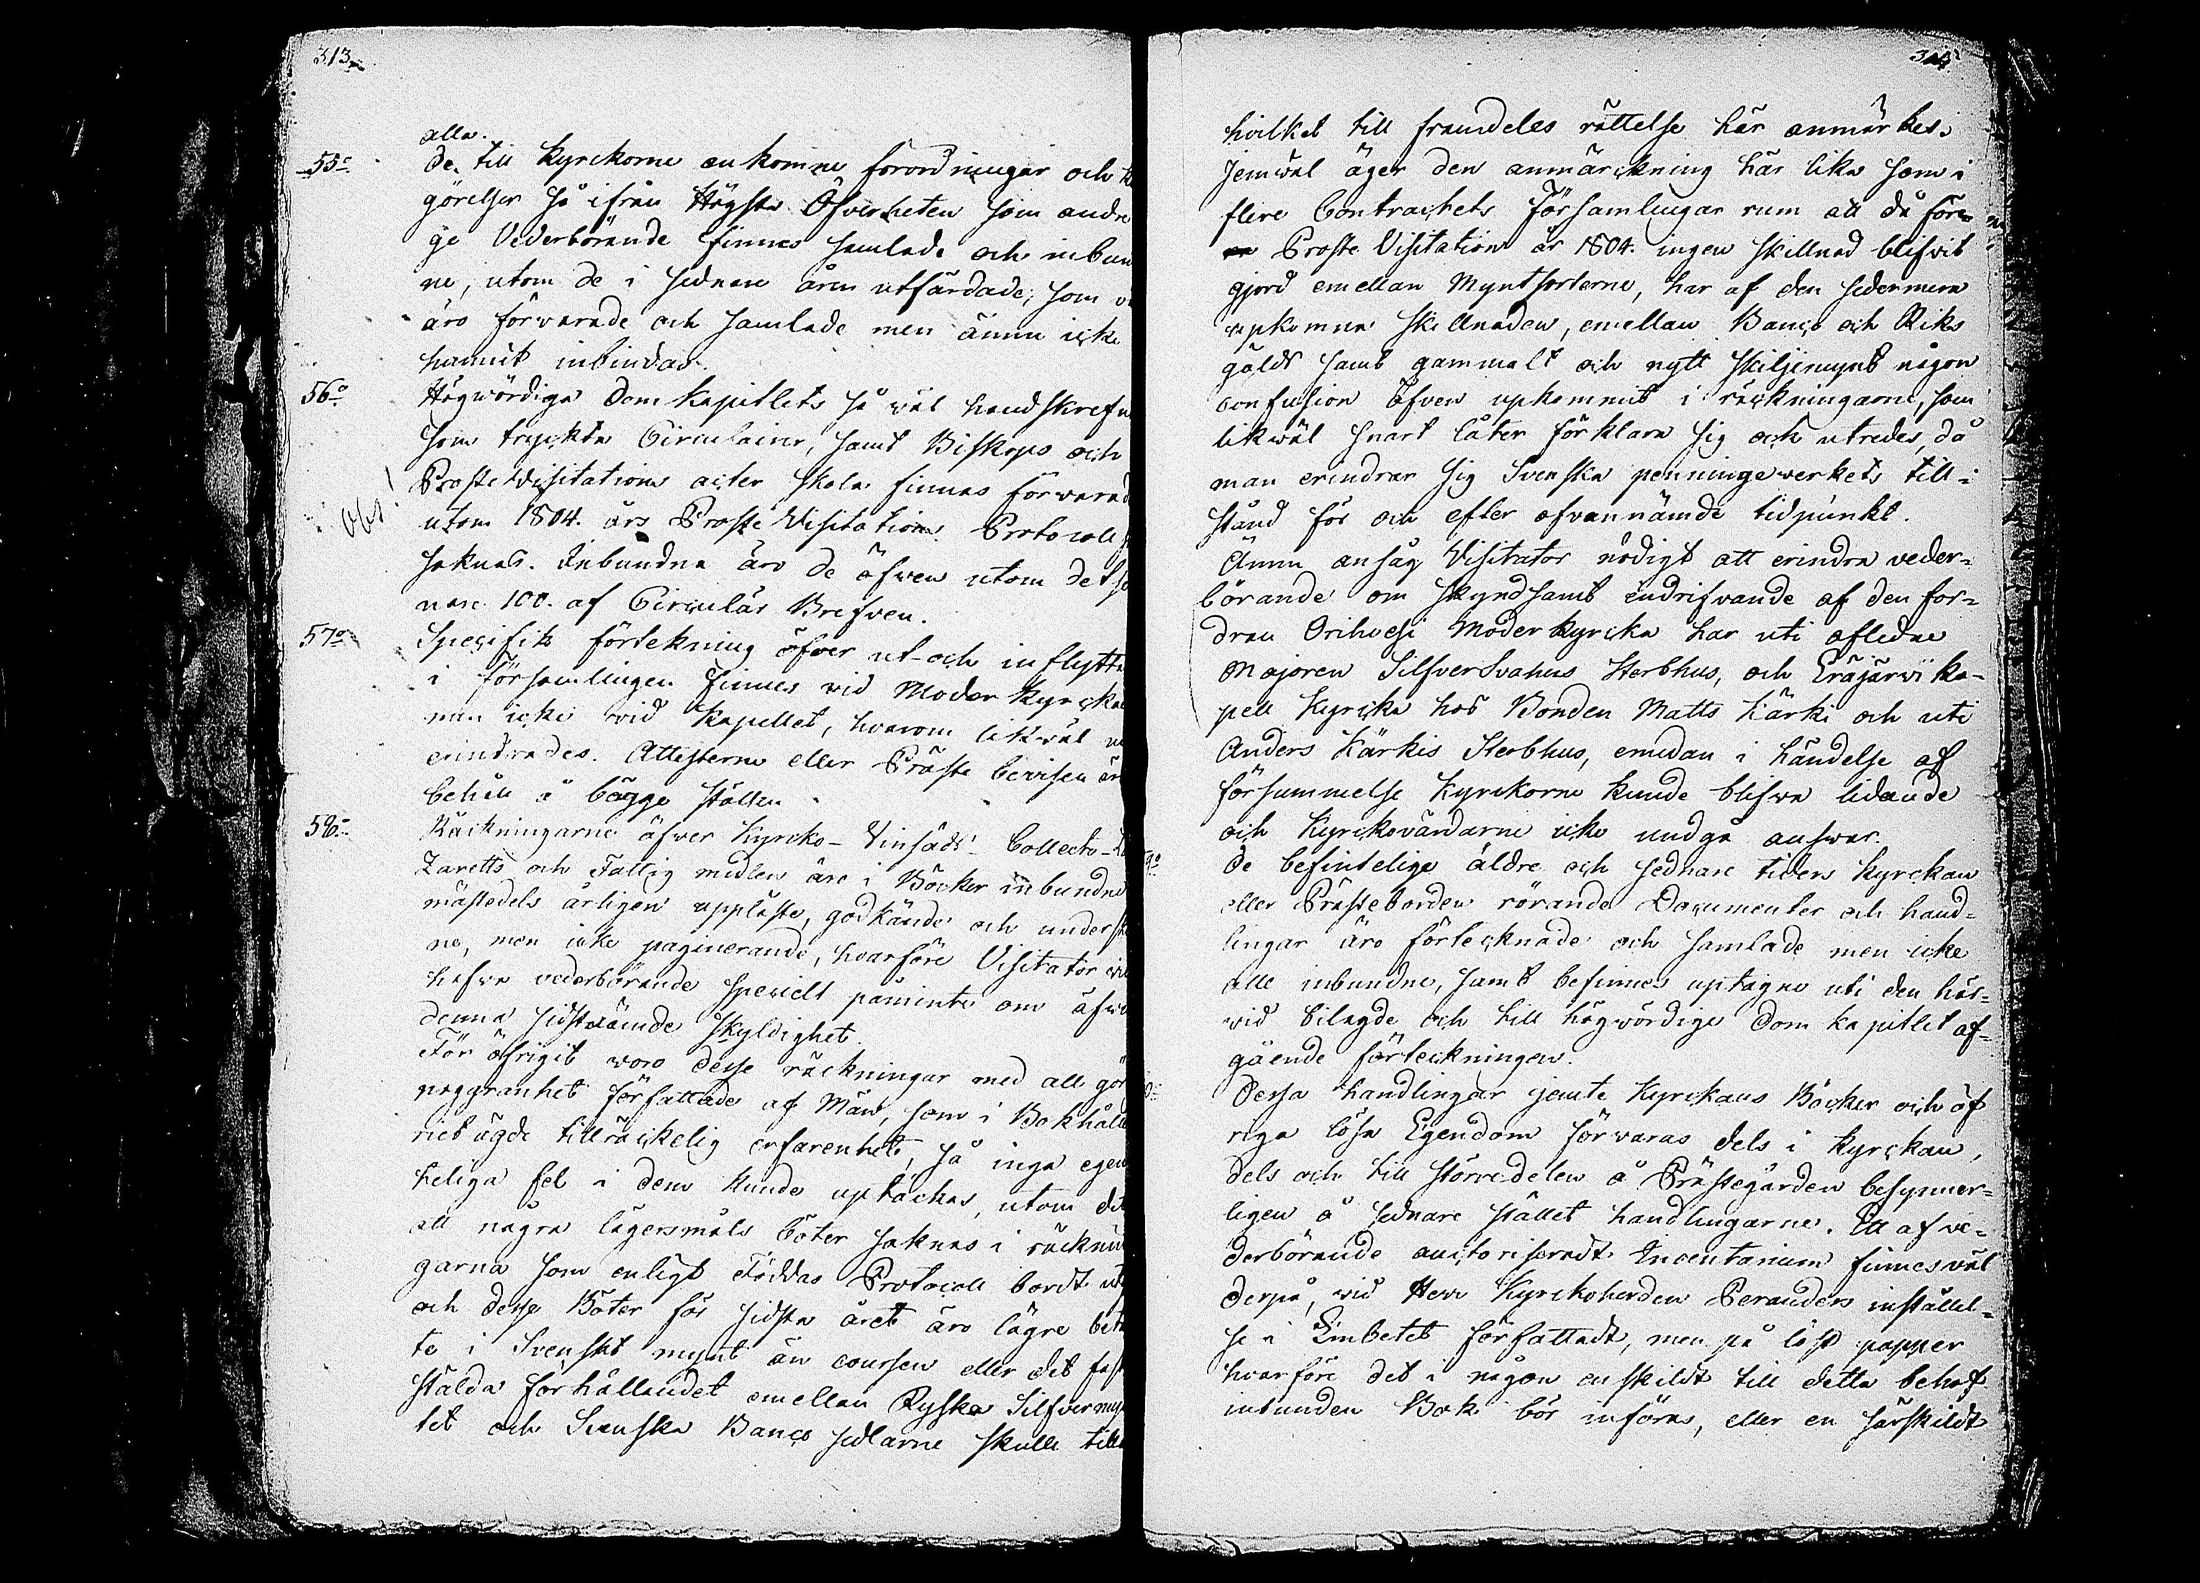 313.
alla
55:o de till Kyrckorne ankomne förordningar och k
görelser så ifrån Högsta Öfverheten som andre
ge Vederbörande finnes samlade och inbun
ne, utom de i sednare åren utfärdade, som v
äro förvarade och samlade men ännu icke
hunnit inbindas.
56:o Högwördiga Dom kapitlets så wäl handskrefn
som tryckta Circulairer, samt Biskops och
Proste Visitations acter skola finnas förvarad
Obs! utom 1804. års Proste Visitations Protocoll
saknas. Inbundna äro de äfwen utom det se
nare 100. af Circulär Brefven.
57:o Specifik förtekning öfver ut- och inflytta
i församlingen finnes vid Moder Kyrckan
men icke wid Kapellet, hvarom likwäl
erindrades. Attesterne eller Präste bevisen är
behåll å bägge ställen.
58:o Räckningarne äfver Kyrcko- Vinsäds- Collects- La
zaretts och Fattig medlen äre i Böcker inbundne
mästedels årligen uppläste, godkände och underskr
ne, men icke paginerande, hvarföre Visitator vil
hafva vederbörande speciellt påminte om äfwe
denna sidstnämde skyldighet.
För öfrigit woro desse räckningar med all gör
noggranhet författade af Män, som i Bokhåll
riet ägde tillräckelig erfarenhet, så inga egen
teliga fel i dem kunde uptäckas, utom det
att några lägersmåls böter saknas i räcknin
garna som enligt Föddas Protocoll bordt
och desse Böter för sidsta året äro lägre beta
te i Svenskt mynt än coursen eller det fast
stälda förhållandet emellan Ryska Silfvermyn
tet och Svenska Banco sedlarne skulle till
314.
hvilket till framdeles rättelse här anmärkes.
Jemwäl äger den anmärckning här lika som i
flere Contractets Församlingar rum att då före
Proste Visitation år 1804. ingen skillnad blifvit
gjord emellan Myntsorterne, har af den sedermera
upkomna skillnaden, emellan Banco och Riks
gälds samt gammalt och nytt skiljemynt någon
confusion äfven upkommit i räckningarne, som
likwäl snart låter förklara sig och utredes, då
man erindrar sig Svenska penningeverkets till-
stånd för och efter ofvannämde tidpunkt.
Ännu ansåg Visitator nödigt att erindra veder-
börande om skyndsamt indrifvande af den for-
dran Orihvesi Moder Kyrcka har uti aflidne
Majoren Silfversvahns Sterbhus, och Eräjärvi ka-
pell Kyrcka hos Bonden Matts Kärki och uti
Anders Kärkis Sterbhus, emedan i händelse af
försummelse Kyrckorne kunde blifva lidande
och Kyrckovärdarne icke undgå answar.
De befintelige äldre och sednare tiders Kyrckan
eller Prästeborden rörande Documenter och hand-
lingar äro förtecknade och samlade men icke
alle inbundne, samt befinnes uptagne uti den här-
wid bilagde och till högwördige Dom kapitlet af-
gående förteckningen.
Dessa handlingar jemte Kyrckans Böcker och öf
riga lösa Egendom förvaras dels i Kyrckan,
dels och till störredelen å Prästegården besynner-
ligen å sednare stället handlingarne. Ett af ve-
derbörande auctoriseradt Inventarium finnes väl
derpå, vid Herr Kyrckoherden Peranders inställel-
se i Embetet författadt, men på löst papper
hvarföre det i någon enskildt till detta behof
inbunden Bok bör införas, eller en särskildt